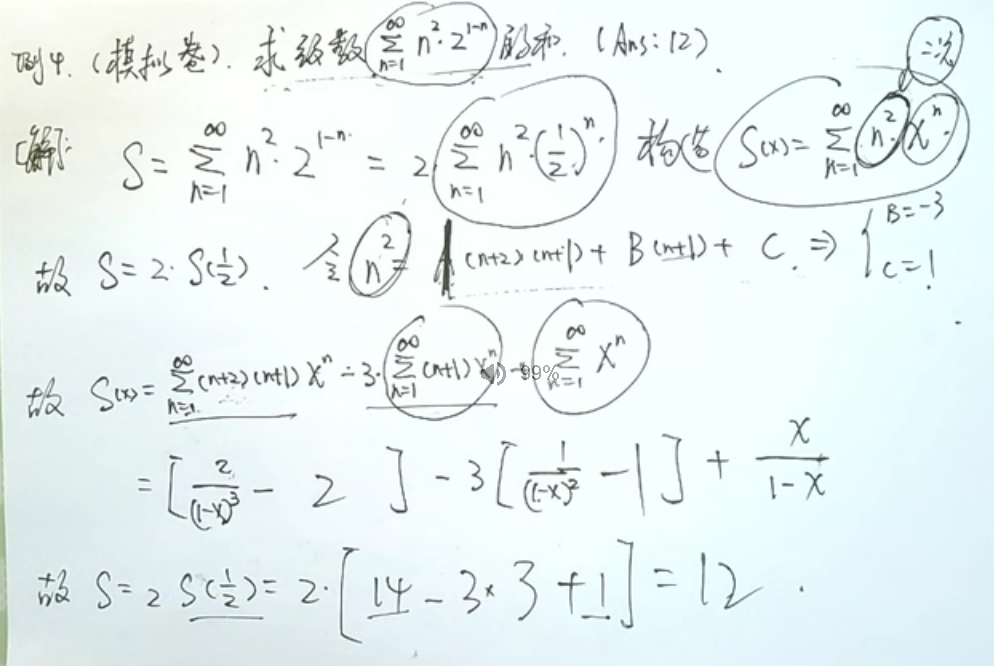 例4. (模拟卷). 求级数 ∑_{n=1}^{∞} n²·2^{1-n} 的和. (Ans: 12).
二次
[解]: S = ∑_{n=1}^{∞} n²·2^{1-n} = 2·∑_{n=1}^{∞} n²·(1/2)^n. 构造 S(x) = ∑_{n=1}^{∞} n²·x^n.
故 S = 2·S(1/2). 令 n² = A(n+2)(n+1) + B(n+1) + C. ⇒ { B = -3 C = 1
故 S(x) = ∑_{n=1}^{∞} (n+2)(n+1) x^n - 3·∑_{n=1}^{∞} (n+1) x^n + ∑_{n=1}^{∞} x^n
99%
= [2/(1-x)³ - 2] - 3[1/(1-x)² - 1] + x/(1-x)
故 S = 2 S(1/2) = 2·[14 - 3×3 + 1] = 12.